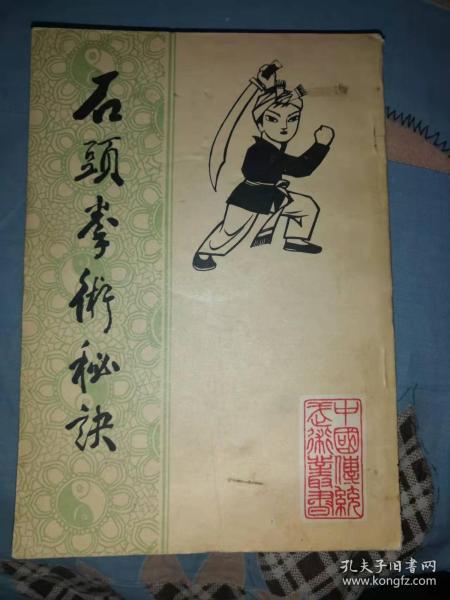 石頭拳術秘訣
中國傳統
武術叢書
孔夫子旧书网
www.kongfz.com